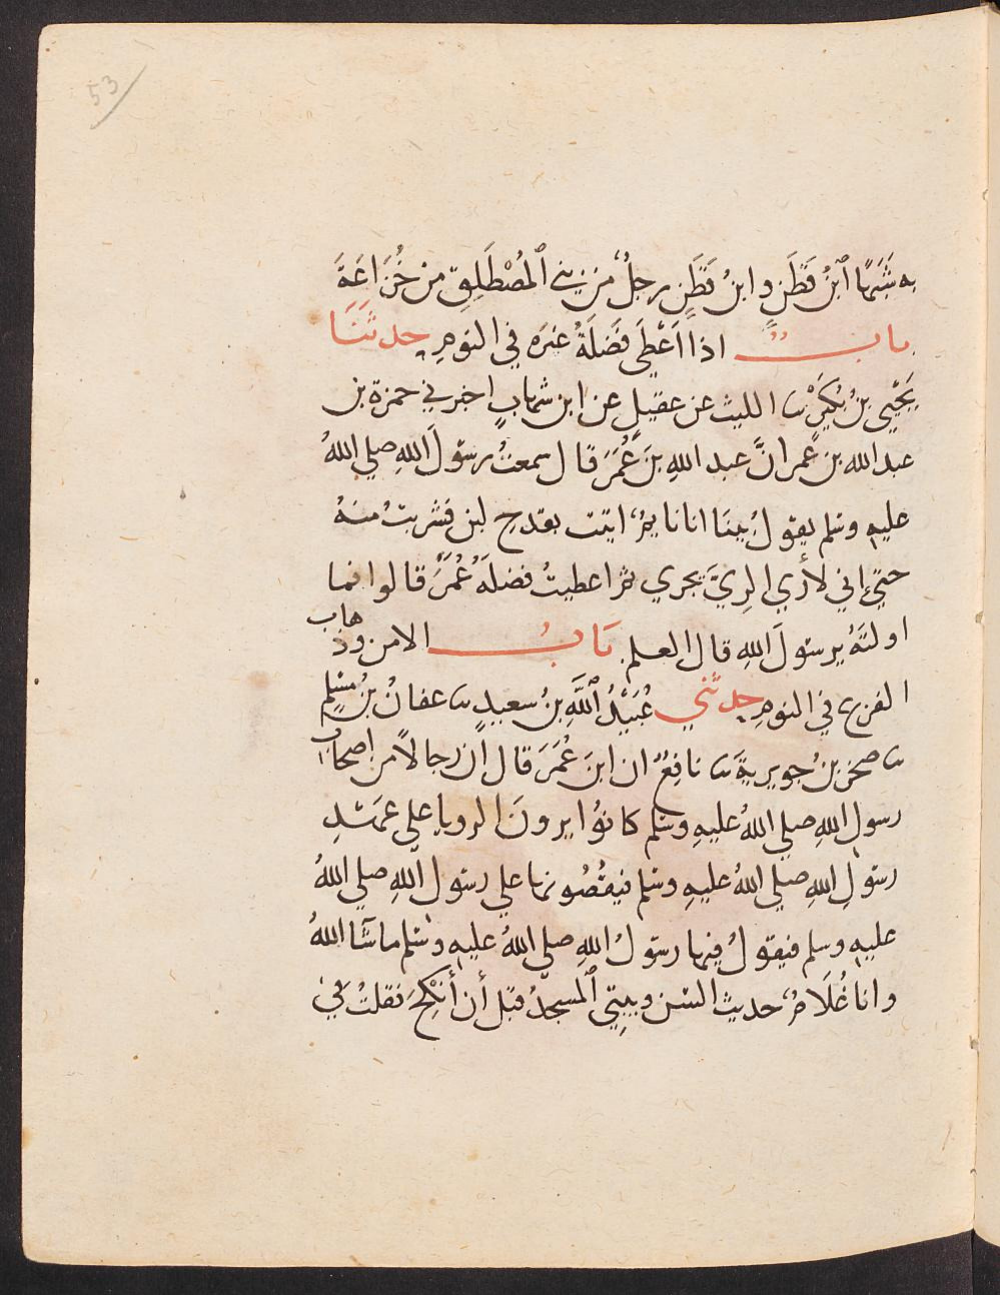 53
به شَبَهًا ابْنُ قَطَنٍ وابنُ قَطَنٍ رجلٌ من بني المُصْطَلِقِ من خُزَاعَةَ
بابٌ اذا اَعْطَى فَضلَهُ غيرَه في النومِ حدثَنَا
يَحْيَى بنُ بُكَيرٍ ثنا الليث عن عقيلٍ عن ابن شهابٍ اخبرني حمزة بن
عبد الله بن عمر انَّ عبد اللهِ بنَ عُمَرَ قال سمعتُ رسولَ اللهِ صلي اللهُ
عليهِ وسلم يقولُ بينَا انا نايمٌ اتيت بقدحِ لبن فشربتُ منهُ
حتي إني لأري الرِيَّ يجري ثم اعطيتُ فضلَهُ عُمَرَ قالوا فما
اولتَهُ يرسولَ اللهِ قال العلم بَابُ الامن وذهاب
الفزع في النومِ حدثني عُبَيْدُ اللَّهِ بنُ سعيدٍ ثنا عفانُ بنُ مسلمٍ
ثنا صخرُ بنُ جويريةَ ثنا نافِعٌ ان ابنَ عُمَرَ قال ان رجالًا من اصحاب
رسولِ اللهِ صلي اللهُ عليهِ وسلم كانوُا يرونَ الرويا علي عهدِ
رسولِ اللهِ صلي اللهُ عليهِ وسلم فيقصُونها علي رسولِ اللهِ صلي اللهُ
عليهِ وسلم فيقولُ فيها رسولُ اللهِ صلي اللهُ عليهِ وسلم ما شا اللهُ
وانا غُلَامٌ حديث السّن وبيتِي المسجدُ قبل أن أنكِحَ فقلتُ في